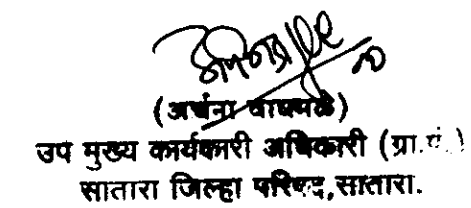 (अर्चना वाघमळे)
उप मुख्य कार्यकारी अधिकारी (ग्रा.पं.)
सातारा जिल्हा परिषद,सातारा.